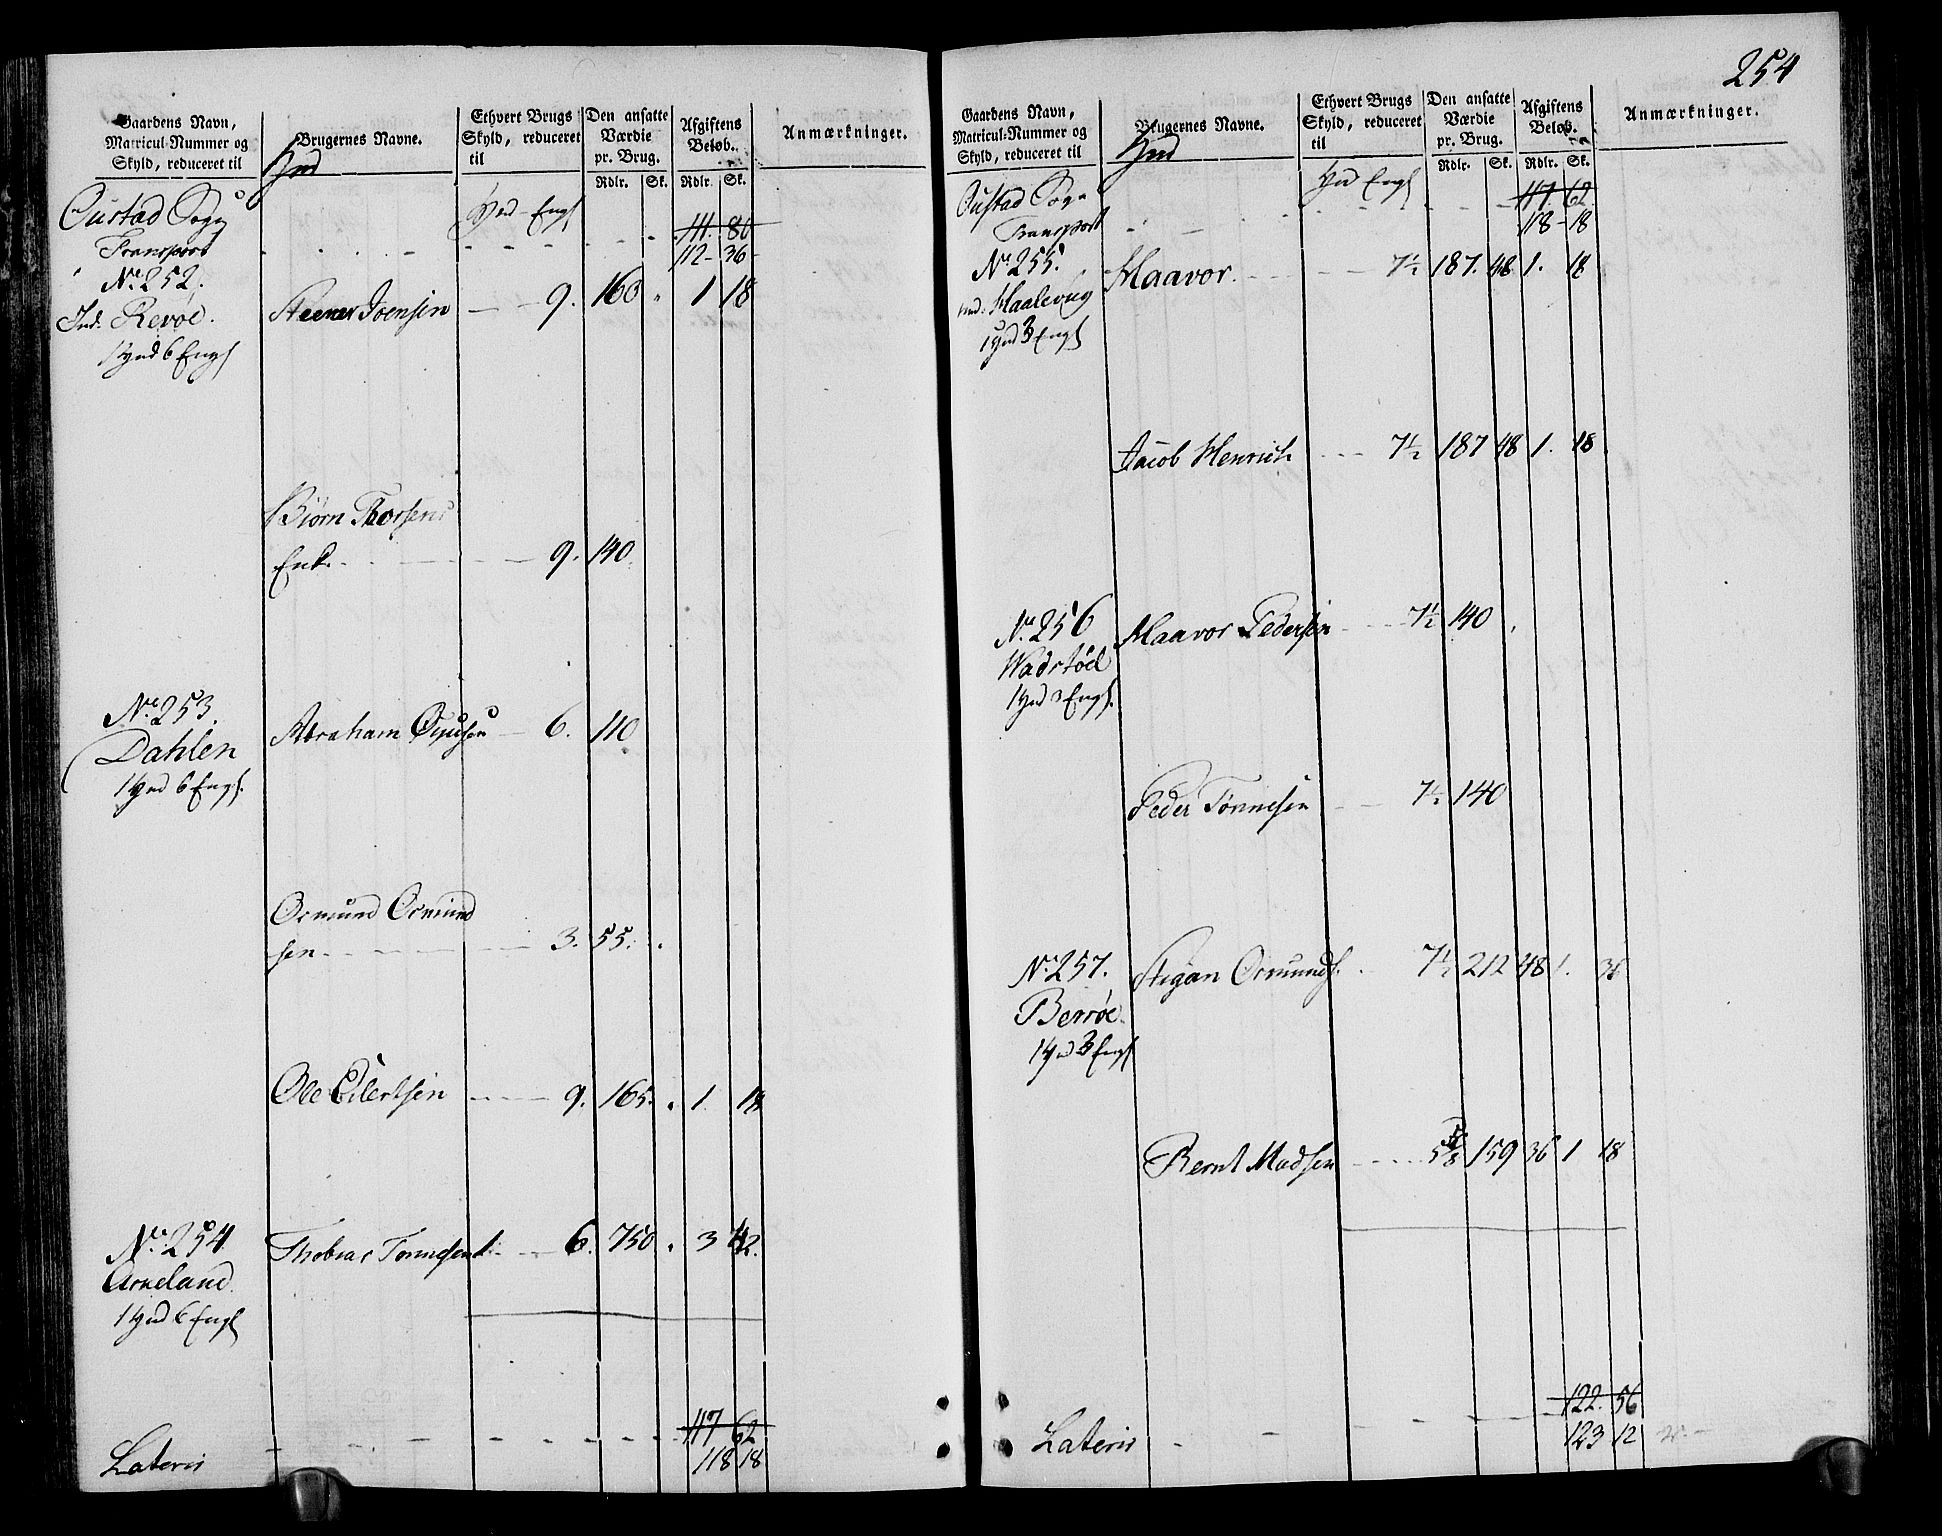 Gaardens Navn,
Matricul-Nummer og
Skyld, reduceret til
Brugernes Navne.
Ethvert Brugs
Skyld, reduceret
til
Den ansatte
Værdie
pr. Brug.
Rdlr. Sk.
Afgiftens
Beløb.
Rdlr. Sk.
Anmærkninger.
Oustad Sogn
Transport 111. 80
112 - 36
No. 252. Steener Joensen 9. 160 1 18
Ind. Revøe.
1 Hud 6 Engl
Biørn Thorsens
Enke 9. 140
No. 253. Abraham 6. 110
Dahlen
1 Hud 6 Engl.
Osmund Osmund
sen 3. 55.
Ole Eilertsen 9. 165. 1. 18
No. 254 Thobias Tønnesen 6. 750 3 42.
Aaneland
1 Hud 6 Engl
117 62
Lateris 118 18
254
Gaardens Navn,
Matricul-Nummer og
Skyld, reduceret til
Brugernes Navne.
Ethvert Brugs
Skyld, reduceret
til
Den ansatte
Værdie
pr. Brug.
Rdlr. Sk.
Afgiftens
Beløb.
Rdlr. Sk.
Anmærkninger.
Hud Engl
Oustad Sogn 117. 62
Transport 118 - 18
No. 255. Haavor 7½ 187. 48 1. 18
ind. Haaleoug
1 Hud 3 Engl
Jacob Henrich 7½ 187 48 1. 18
No. 256 Haavor Pedersen 7½ 140
Wadstøel
1 Hud 3 Engl.
Peder Tønnesen 7½ 140
No. 257. Stigan Osmunds. 7½ 212 48 1. 36
Berrøe
1 Hud 3 Engl
Bernt Madsen 5⅝ 159 36 1 18
122. 56
Lateris 123 12